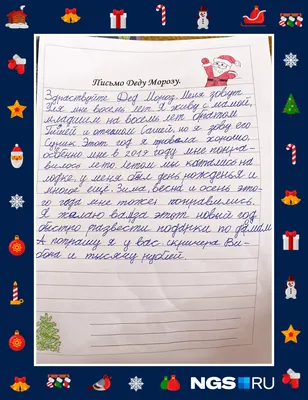 Письмо Деду Морозу.
Здраствуйте Дед Мороз. Меня зовут
мне восемь лет. Я живу с мамой,
младшим на восемь лет братом
и отчимом Сашей, но я зову его
Этот год я провела хорошо.
особенно мне в 2019 году мне понра-
вилось лето летом мы катались на
лодке, у меня был день рожденья и
многое ещё. Зима, весна и осень это-
го года мне тоже понравились.
Я желаю вам в этот новый год
быстро развести подарки по домам
А попрошу я у вас скринера Ви-
бона и тысячу рублей.
NGS RU